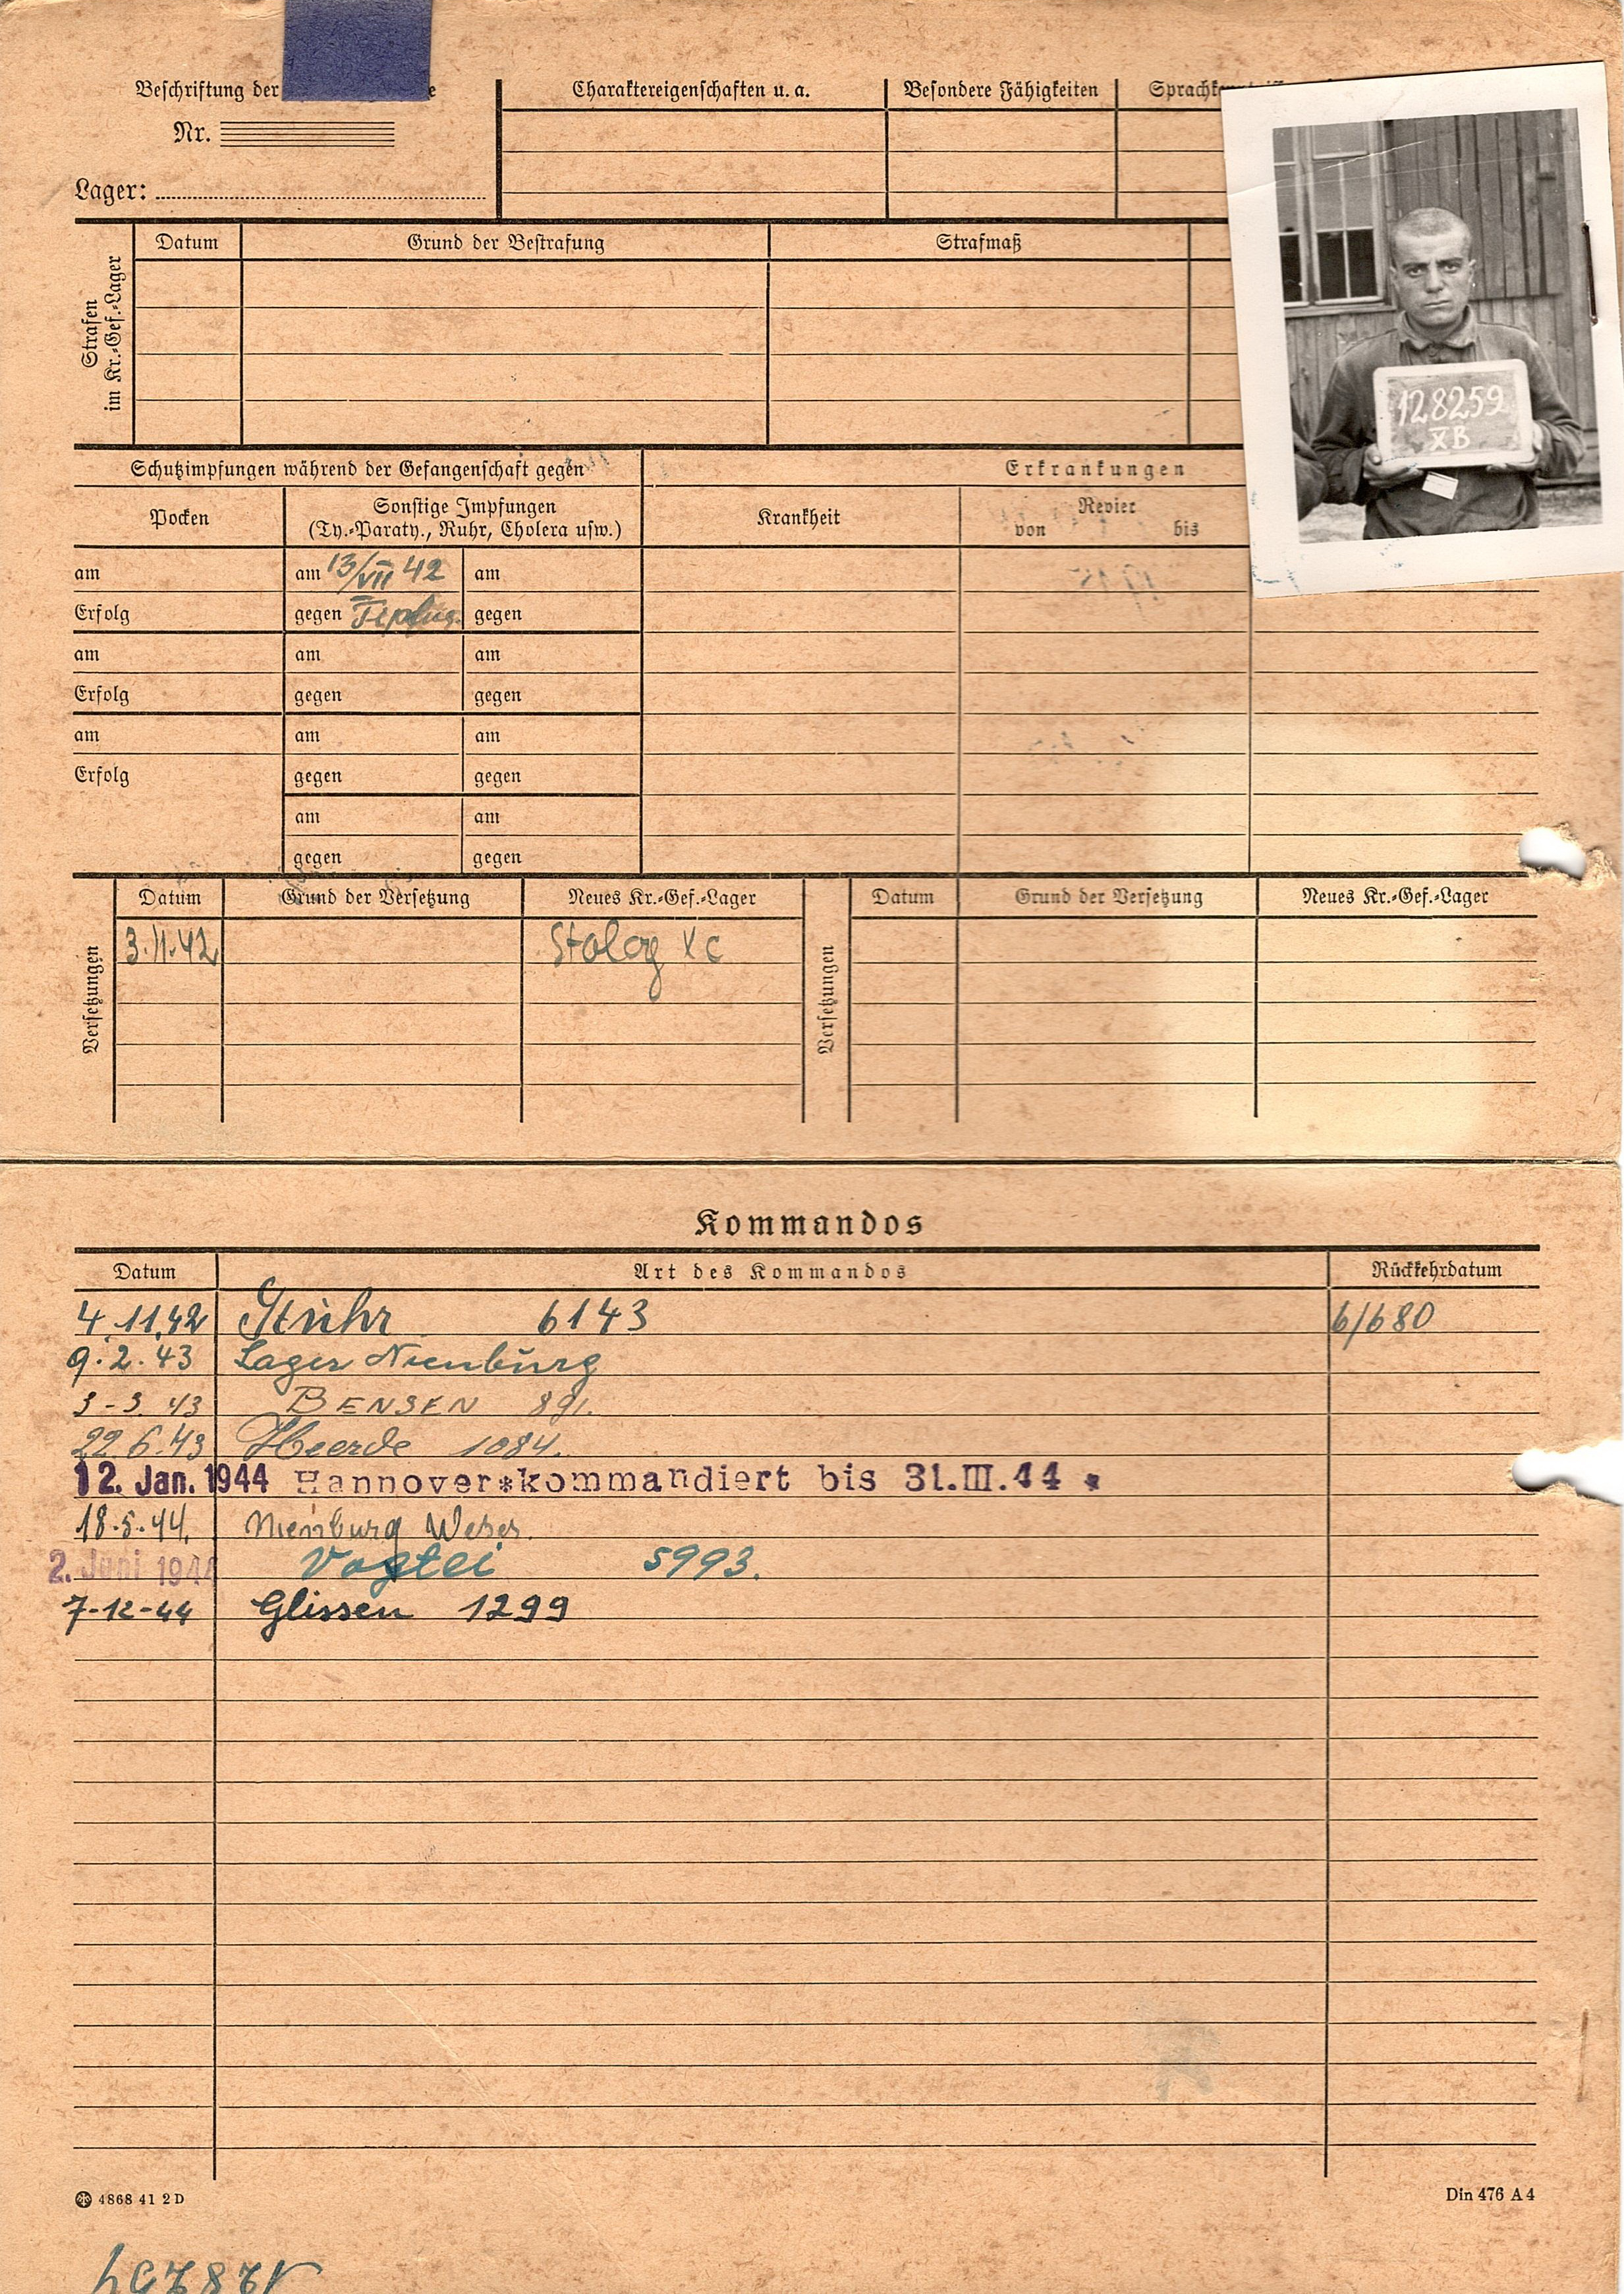 Beschriftung der e
Nr.
Lager:
Charaktereigenschaften u. a.
Besondere Fähigkeiten
Strafen
im Kr.-Gef.-Lager
Datum
Grund der Bestrafung
Strafmaß
128259
XB
Schutzimpfungen während der Gefangenschaft gegen
Erkrankungen
Pocken
Sonstige Impfungen
(Ty.-Paraty., Ruhr, Cholera usw.)
Krankheit
Revier
von bis
am am 13/VII 42 am
Erfolg gegen gegen
am am am
Erfolg gegen gegen
am am am
Erfolg gegen gegen
am am
gegen gegen
Versetzungen
Datum Grund der Versetzung Neues Kr.-Gef.-Lager
3.11.42 Stalag XC
Versetzungen
Datum Grund der Versetzung Neues Kr.-Gef.-Lager
Kommandos
Datum Art des Kommandos Rückkehrdatum
4.11.42 Stuhr 6143 6/680
9.2.43 Lager Nienburg
3-3.43 BENSEN 891.
22.6.43 Heerde 1084.
12. Jan. 1944 Hannover*kommandiert bis 31.III.44 *
18.5.44. Nienburg Weser.
2. Juni 1944 Vogtei 5993.
7-12-44 Glissen 1299
4868 41 2 D
Din 476 A 4